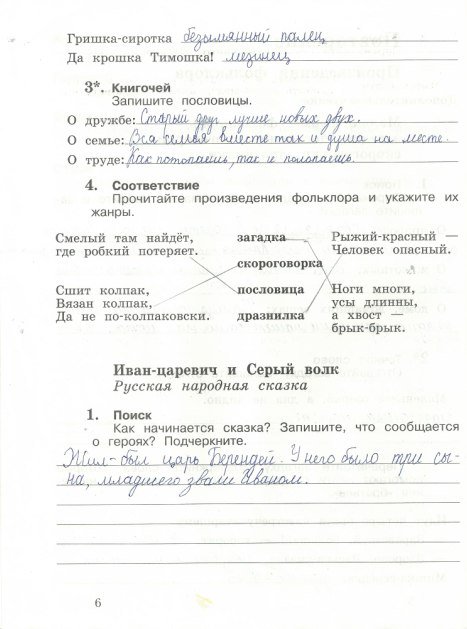 Гришка-сиротка безымянный палец
Да крошка Тимошка! мезинец
3*. Книгочей
Запишите пословицы.
О дружбе: Старый друг лучше новых двух.
О семье: Вся семья вместе так и душа на месте.
О труде: Как потопаешь, так и полопаешь.
4. Соответствие
Прочитайте произведения фольклора и укажите их
жанры.
Смелый там найдёт,
где робкий потеряет.
Сшит колпак,
Вязан колпак,
Да не по-колпаковски.
загадка
скороговорка
пословица
дразнилка
Рыжий-красный —
Человек опасный.
Ноги многи,
усы длинны,
а хвост —
брык-брык.
Иван-царевич и Серый волк
Русская народная сказка
1. Поиск
Как начинается сказка? Запишите, что сообщается
о героях? Подчеркните.
Жил-был царь Берендей. У него было три сы-
на, младшего звали Иваном.
6